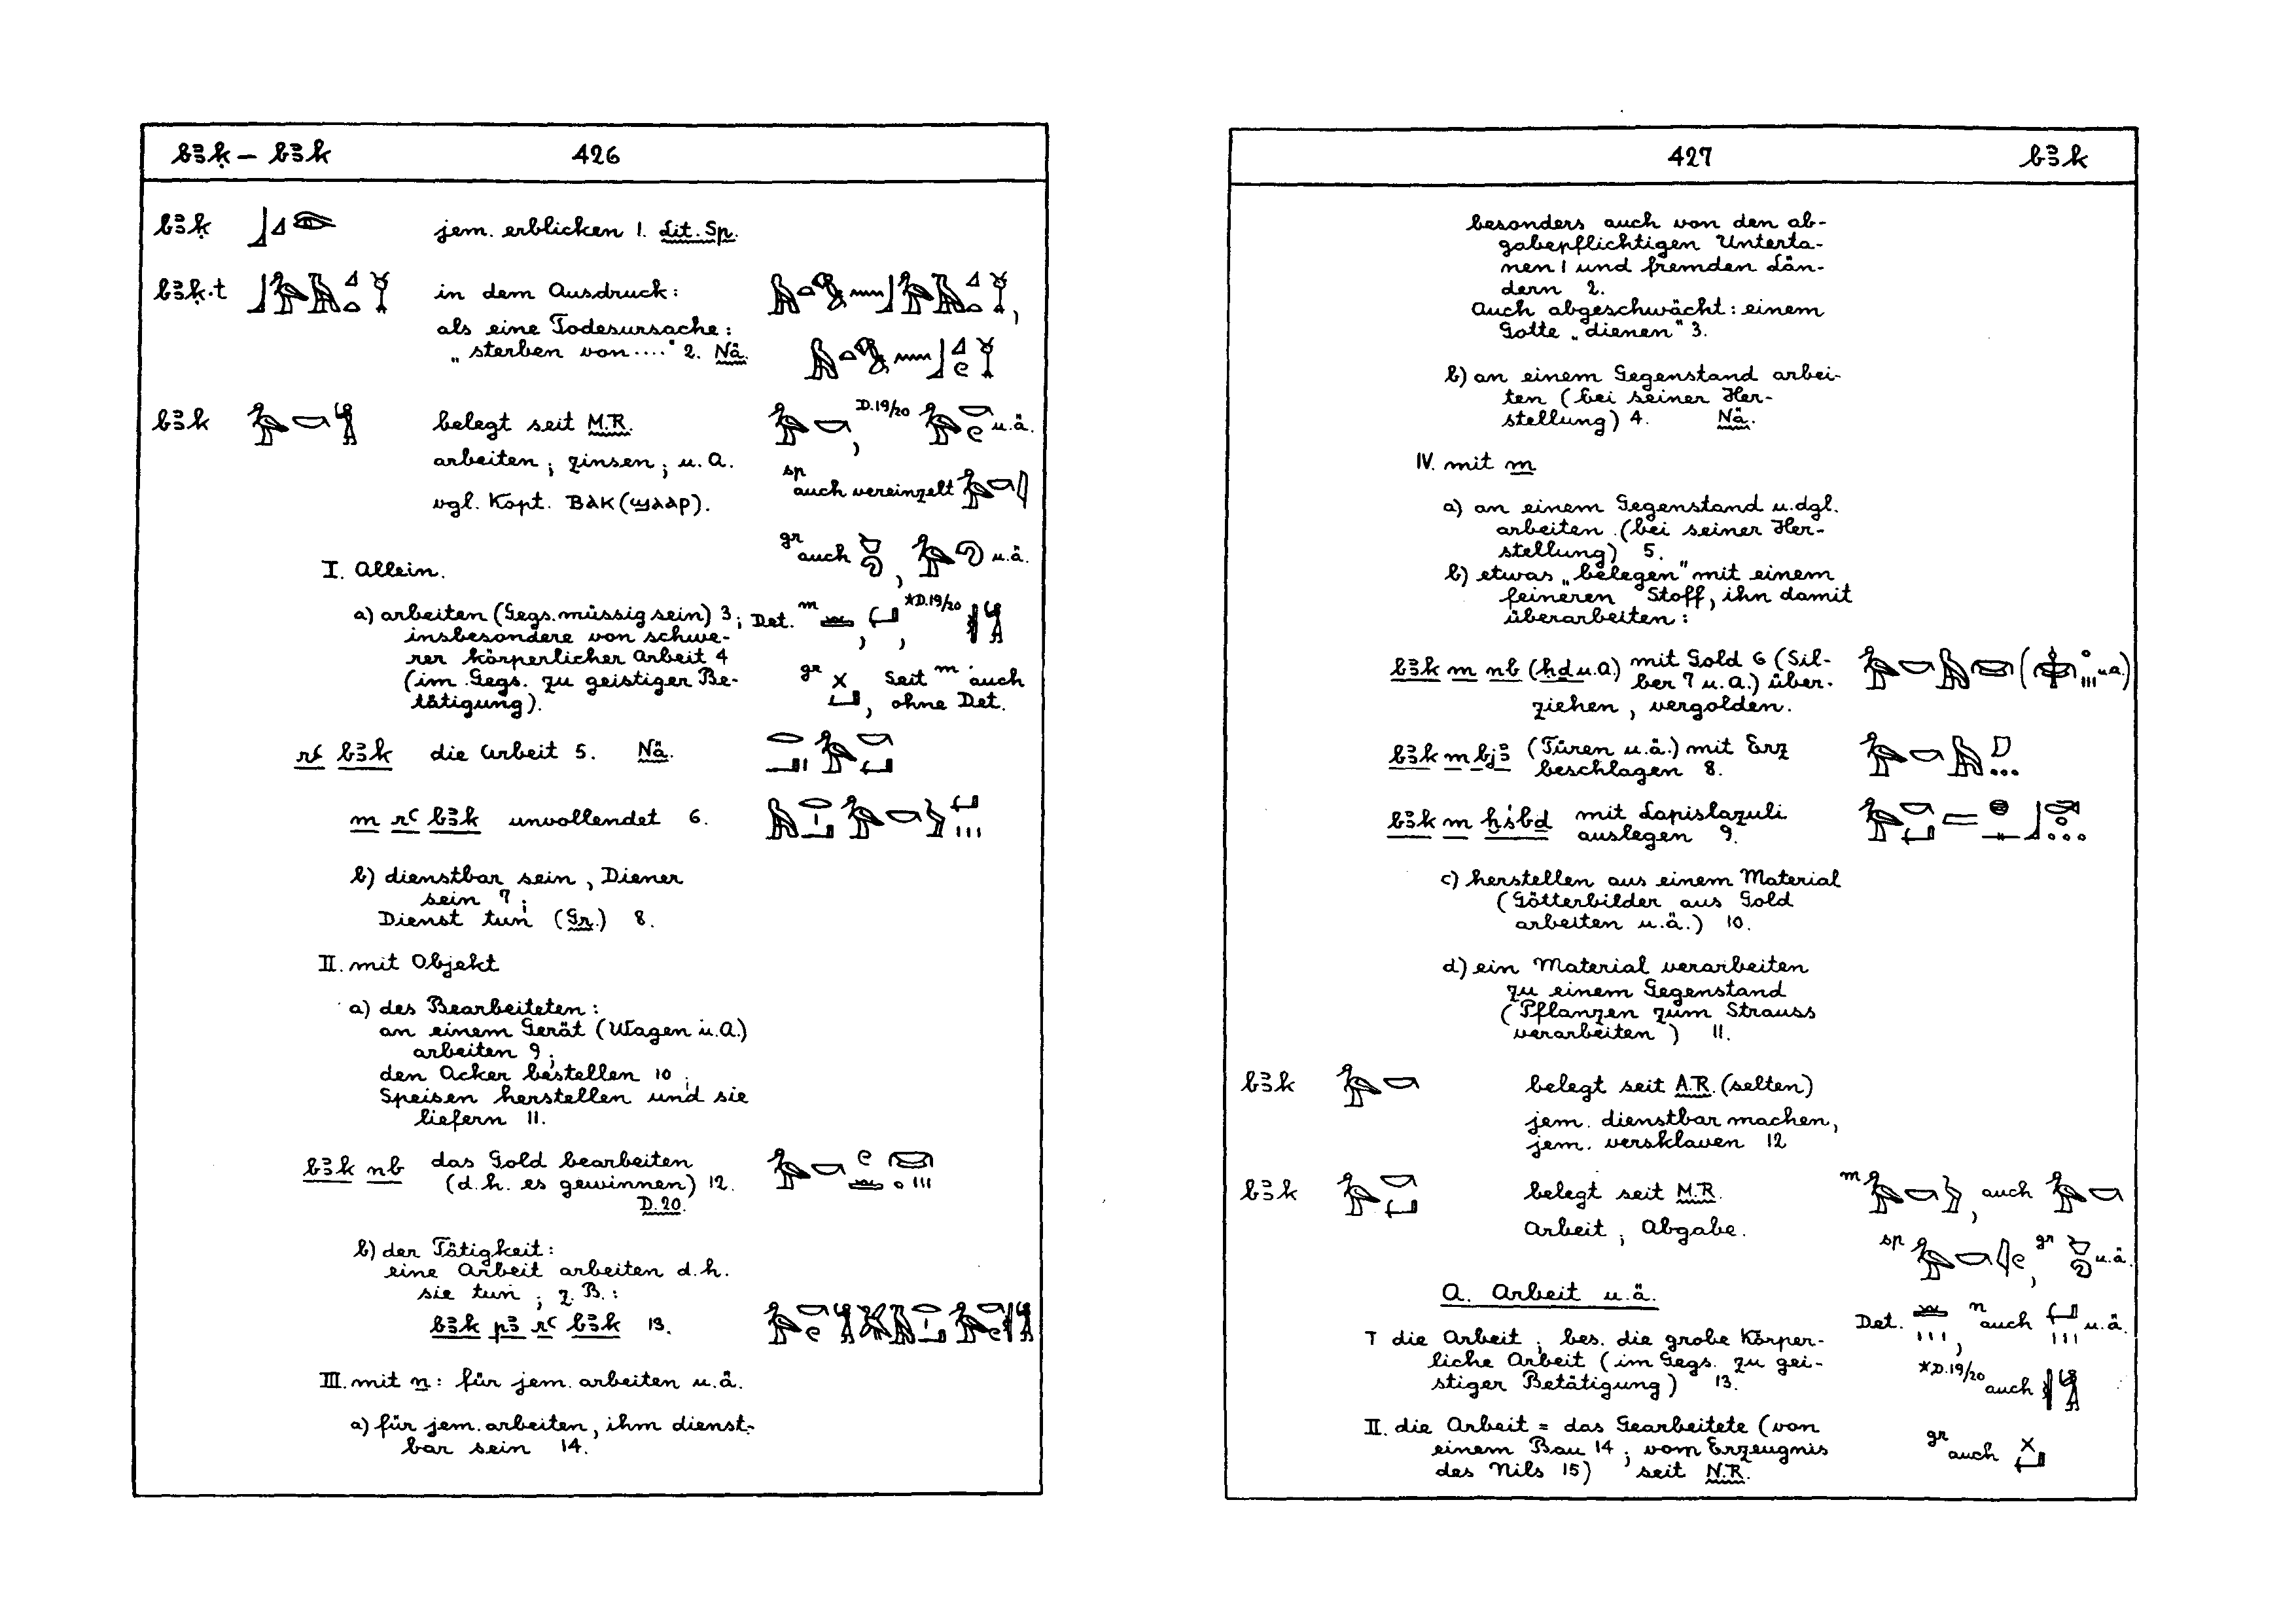 bꜣḳ – bꜣk 426
bꜣḳ jem. erblicken 1. Lit. Sp.
bꜣḳ.t in dem Ausdruck:
als eine Todesursache:
„sterben von...." 2. Nä.
bꜣk belegt seit M.R. D.19/20 u.ä.
arbeiten; zinsen; u.A.
sp auch vereinzelt
vgl. Kopt. ⲃⲁⲕ (ϣⲁⲁⲣ).
gr auch , u.ä.
I. Allein.
a) arbeiten (Gegs. müssig sein) 3; Det. m , , *D.19/20
insbesondere von schwe-
rer körperlicher Arbeit 4
(im Gegs. zu geistiger Be-
tätigung).
gr , seit m auch
ohne Det.
rꜥ bꜣk die Arbeit 5. Nä.
m rꜥ bꜣk unvollendet 6.
b) dienstbar sein, Diener
sein 7;
Dienst tun (Gr.) 8.
II. mit Objekt
a) des Bearbeiteten:
an einem Gerät (Wagen u.A.)
arbeiten 9;
den Acker bestellen 10;
Speisen herstellen und sie
liefern 11.
bꜣk nb das Gold bearbeiten
(d.h. es gewinnen) 12.
D.20.
b) der Tätigkeit:
eine Arbeit arbeiten d.h.
sie tun; z.B.:
bꜣk pꜣ rꜥ bꜣk 13.
III. mit n: für jem. arbeiten u.ä.
a) für jem. arbeiten, ihm dienst-
bar sein 14.
427 bꜣk
besonders auch von den ab-
gabepflichtigen Unterta-
nen 1 und fremden Län-
dern 2.
Auch abgeschwächt: einem
Gotte „dienen" 3.
b) an einem Gegenstand arbei-
ten (bei seiner Her-
stellung) 4. Nä.
IV. mit m
a) an einem Gegenstand u.dgl.
arbeiten (bei seiner Her-
stellung) 5.
b) etwas „belegen" mit einem
feineren Stoff, ihn damit
überarbeiten:
bꜣk m nb (ḥḏ u.A.) mit Gold 6 (Sil-
ber 7 u.A.) über-
ziehen, vergolden.
( u.A.)
bꜣk m bjꜣ (Türen u.ä.) mit Erz
beschlagen 8.
bꜣk m ḫśbd mit Lapislazuli
auslegen 9.
c) herstellen aus einem Material
(Götterbilder aus Gold
arbeiten u.ä.) 10.
d) ein Material verarbeiten
zu einem Gegenstand
(Pflanzen zum Strauss
verarbeiten) 11.
bꜣk belegt seit A.R. (selten)
jem. dienstbar machen,
jem. versklaven 12
bꜣk belegt seit M.R. m , auch
Arbeit; Abgabe.
sp , gr u.ä.
A. Arbeit u.ä.
Det. , n auch u.ä.
I die Arbeit; bes. die grobe Körper-
liche Arbeit (im Gegs. zu gei-
stiger Betätigung) 13.
*D.19/20 auch
II. die Arbeit = das Gearbeitete (von
einem Bau 14; vom Erzeugnis
des Nils 15) seit N.R.
gr auch